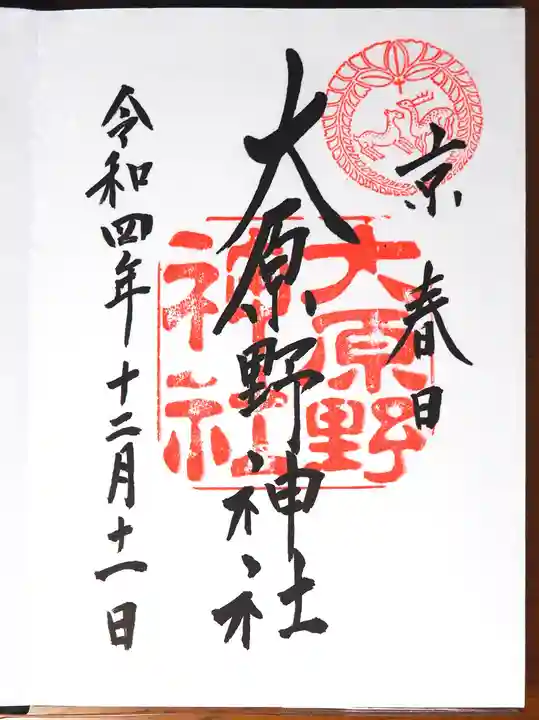 京春日
大原野神社
大原野
神社
令和四年十二月十一日